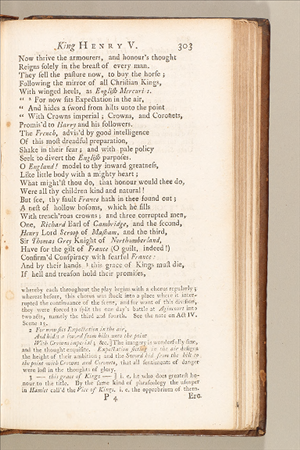 King HENRY V. 303
Now thrive the armourers, and honour's thought
Reigns solely in the breast of every man.
They sell the pasture now, to buy the horse;
Following the mirror of all Christian Kings,
With winged heels, as English Mercuries.
" ² For now sits Expectation in the air,
" And hides a sword from hilts unto the point
" With Crowns imperial; Crowns, and Coronets,
Promis'd to Harry and his followers.
The French, advis'd by good intelligence
Of this most dreadful preparation,
Shake in their fear; and with pale policy
Seek to divert the English purposes.
O England! model to thy inward greatness,
Like little body with a mighty heart;
What might'st thou do, that honour would thee do,
Were all thy children kind and natural!
But see, thy fault France hath in thee found out;
A nest of hollow bosoms, which he fills
With treach'rous crowns; and three corrupted men,
One, Richard Earl of Cambridge, and the second,
Henry Lord Scroop of Masham, and the third,
Sir Thomas Grey Knight of Northumberland,
Have for the gilt of France (O guilt, indeed!)
Confirm'd Conspiracy with fearful France:
And by their hands ³ this grace of Kings must die,
If hell and treason hold their promises,
whereby each throughout the play begins with a chorus regularly;
whereas before, this chorus was stuck into a place where it inter-
rupted the continuance of the scene, and for want of this division,
they were forced to split the one day's battle at Agincourt into
two acts, namely the third and fourth. See the note on Act IV.
Scene 15.
2 For now sits Expectation in the air,
And hides a sword from hilts unto the point
With Crowns imperial; &c.] The imagery is wonderfully fine,
and the thought exquisite. Expectation sitting in the air designs
the height of their ambition; and the Sword hid from the hilt to
the point with Crowns and Coronets, that all sentiments of danger
were lost in the thoughts of glory.
3 —this grace of Kings—] i. e. he who does greatest ho-
nour to the title. By the same kind of phraseology the usurper
in Hamlet call'd the Vice of Kings, i. e. the opprobrium of them.
P 4 Ere